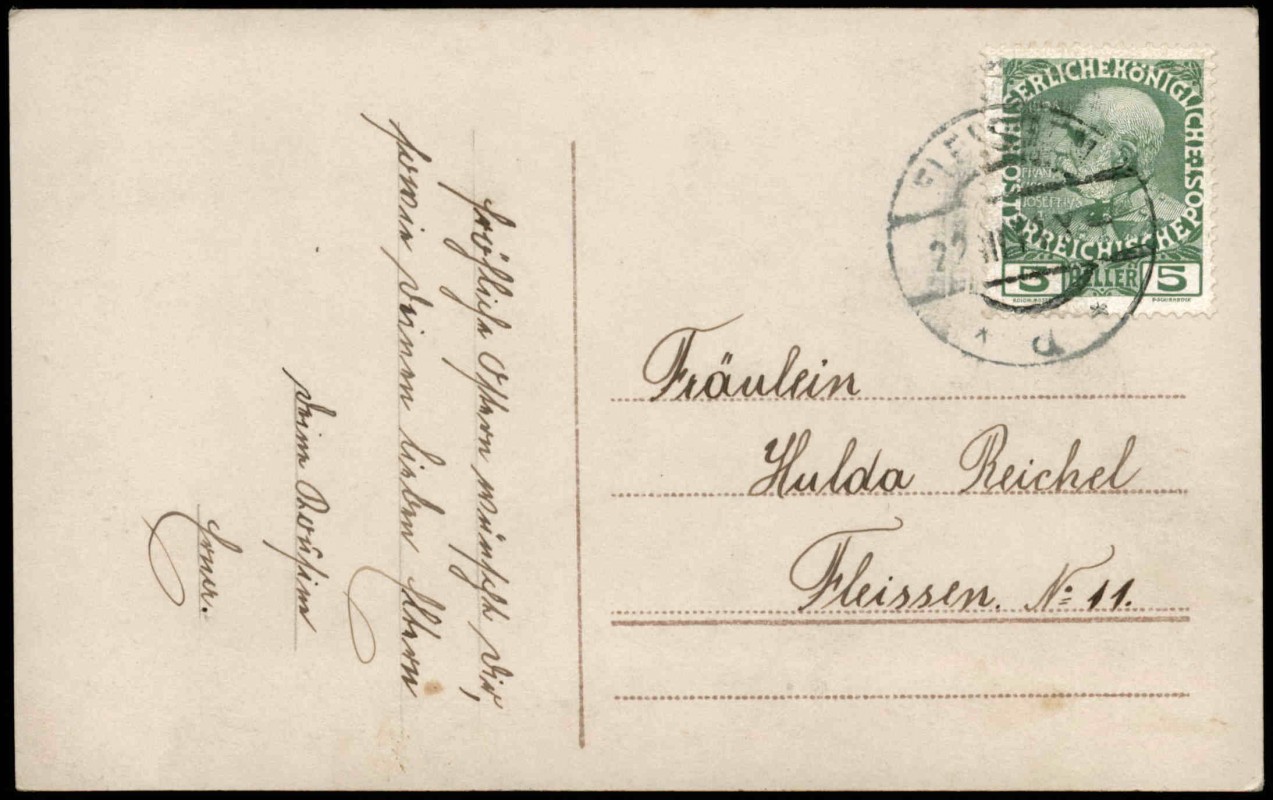 Fröhliche Ostern wünscht Dir,
sowie Deinen lieben Eltern
Deine Cousine
Erner.
KAISERLICHE KÖNIGLICHE ÖSTERREICHISCHE POST
FRANZ
JOSEPH I
5 HELLER 5
Fräulein
Hulda Reichel
Fleissen. No 11.